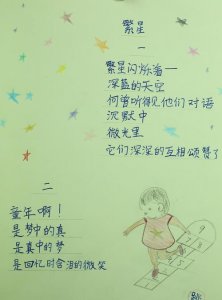 繁星
一
繁星闪烁着一
深蓝的天空
何曾听得见他们对语
沉默中
微光里
它们深深的互相颂赞了
二
童年啊！
是梦中的真
是真中的梦
是回忆时含泪的微笑